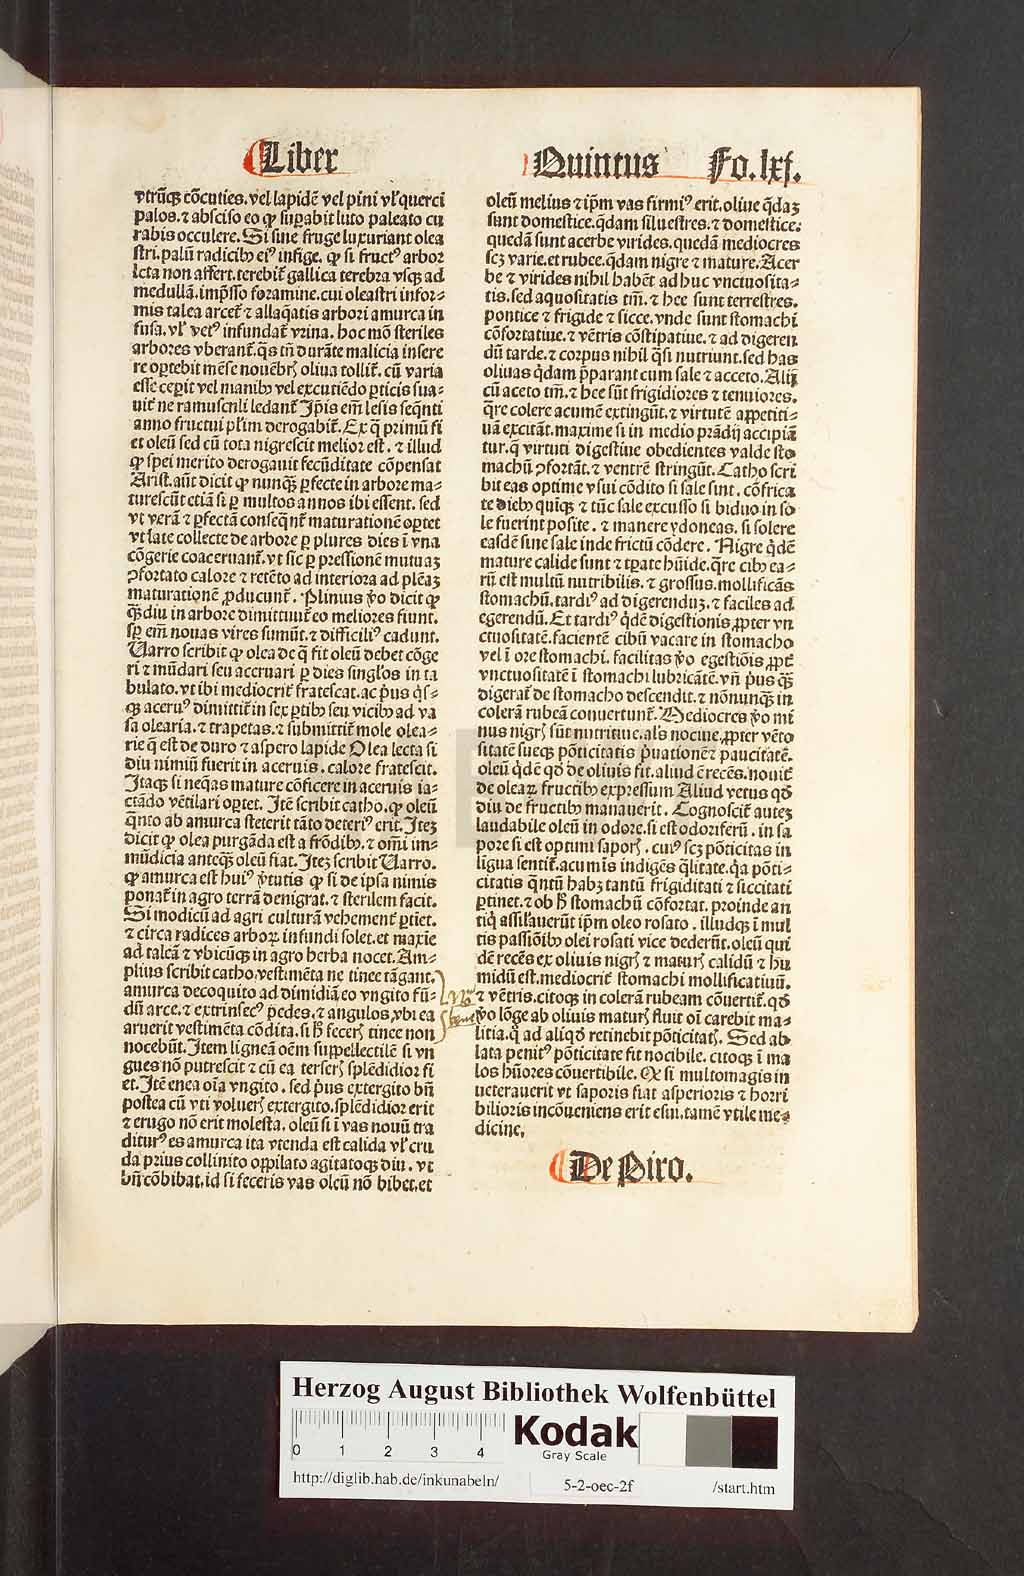 Liber Quintus Fo.lxj.
vtrũq̃ cõcuties. vel lapidẽ vel pini vl' querci
palos. ⁊ absciso eo ꝙ suꝑabit luto paleato cu
rabis occulere. Si sine fruge luxuriant olea
stri. palũ radicibꝰ eiꝰ infige. ꝙ si fructꝰ arbor
lcta non affert. terebit̃ gallica terebra vsqꝫ ad
medullã. imp̃sso foramine. cui oleastri infor⸗
mis talea arcet̃ ⁊ allaq̃atis arbori amurca in
fusa. vl' vetꝰ infundat̃ vrina. hoc mõ steriles
arbores vberant̃. q̃s tñ durãte malicia insere
re oꝑtebit mẽse nouẽbrꝭ oliua tollit̃. cũ varia
esse ceꝑit vel manibꝰ vel excutiẽdo ꝑticis sua⸗
uit̃ ne ramusculi ledant̃ Ip̃is em̃ lesis seq̃nti
anno fructui pl'im derogabit̃. Ex q̃ primũ fi
et oleũ sed cũ tota nigrescit melior est. ⁊ illud
ꝙ spei merito derogauit fecũditate cõpensat
Arist. aũt dicit ꝙ nunq̃ꝫ ꝑfecte in arbore ma⸗
turescũt etiã si ꝑ multos annos ibi essent. sed
vt verã ⁊ ꝑfectã conseq̃nt̃ maturationẽ oꝑtet
vt late collecte de arbore ꝑ plures dies ĩ vna
cõgerie coaceruant̃. vt sic ꝑ pressionẽ mutuaꝫ
ꝯfortato calore ⁊ retẽto ad interiora ad plẽaꝫ
maturationẽ ꝓducunt̃. Plinius ṽo dicit ꝙ
q̃ꝫdiu in arbore dimittunt̃ eo meliores fiunt.
sꝑ em̃ nouas vires sumũt. ⁊ difficiliꝰ cadunt.
Varro scribit ꝙ olea de q̃ fit oleũ debet cõge
ri ⁊ mũdari seu accruari ꝑ dies singl'os in ta
bulato. vt ibi mediocrit̃ fratescat. ac p̃us q̃s⸗
qꝫ aceruꝰ dimittit̃ in sex ꝑtibꝰ seu vicibꝰ ad va
sa olearia. ⁊ trapetas. ⁊ submittit̃ mole olea⸗
rie q̃ est de duro ⁊ aspero lapide Olea lecta si
diu nimiũ fuerit in aceruis. calore fratescit.
Itaqꝫ si neq̃as mature cõficere in aceruis ia⸗
ctãdo vẽtilari oꝑtet. Itẽ scribit catho. ꝙ oleũ
q̃nto ab amurca steterit tãto deteriꝰ erit. Iteꝫ
dicit ꝙ olea purgãda est a frõdibꝰ. ⁊ om̃i im⸗
mũdicia anteq̃ꝫ oleũ fiat. Iteꝫ scribit Varro.
ꝙ amurca est huiꝰ ṽtutis ꝙ si de ipsa nimis
ponat̃ in agro terrã denigrat. ⁊ sterilem facit.
Si modicũ ad agri culturã vehement̃ ꝑtiet.
⁊ circa radices arboꝝ infundi solet. et maxie
ad talcã ⁊ vbicũqꝫ in agro herba nocet. Am⸗
plius scribit catho. vestimẽta ne tinee tãgant.
amurca decoquito ad dimidiã eo vngito fũ⸗
dũ arce. ⁊ extrinsecꝰ p̃edes. ⁊ angulos. vbi ea
aruerit vestimẽta cõdita. si h̃ fecerꝭ tinee non
nocebũt. Item ligneã oẽm suppellectilẽ si vn
gues nõ putrescit ⁊ cũ ea terserꝭ splẽdidior fi
et. Itẽ enea oĩa vngito. sed p̃us extergito bñ
postea cũ vti voluerꝭ extergito. splẽdidior erit
⁊ erugo nõ erit molesta. oleũ si ĩ vas nouũ tra
diturꝰ es amurca ita vtenda est calida vl' cru
da prius collinito oppilato agitatoqꝫ diu. vt
bñ cõbibat. id si feceris vas oleũ nõ bibet. et
oleũ melius ⁊ ip̃m vas firmiꝰ erit. oliue q̃daꝫ
sunt domestice. q̃dam siluestres. ⁊ domestice:
quedã sunt acerbe virides. quedã mediocres
scꝫ varie. et rubee. q̃dam nigre ⁊ mature. Acer
be ⁊ virides nihil habẽt ad huc vnctuosita⸗
tis. sed aquositatis tm̃. ⁊ hee sunt terrestres.
pontice ⁊ frigide ⁊ sicce. vnde sunt stomachi
cõfortatiue. ⁊ vẽtris cõstipatiue. ⁊ ad digeren
dũ tarde. ⁊ corpus nihil q̃si nutriunt. sed has
oliuas q̃dam p̃parant cum sale ⁊ acceto. Alij
cũ aceto tm̃. ⁊ hee sũt frigidiores ⁊ tenuiores.
q̃re colere acumẽ extingũt. ⁊ virtutẽ appetiti⸗
uã excitãt. maxime si in medio prãdij accipiã
tur. q̃ virtuti digestiue obedientes valde sto
machũ ꝯfortãt. ⁊ ventrẽ stringũt. Catho scri
bit eas optime vsui cõdito si sale sunt. cõfrica
te diebꝰ quiqꝫ ⁊ tũc sale excusso si biduo in so
le fuerint posite. ⁊ manere ydoneas. si solere
easdẽ sine sale inde frictũ cõdere. Nigre q̃dẽ
mature calide sunt ⁊ tꝑate hũide. q̃re cibꝰ ea⸗
rũ est multũ nutribilis. ⁊ grossus. mollificãs
stomachũ. tardiꝰ ad digerenduꝫ. ⁊ faciles ad
egerendũ. Et tardiꝰ q̃dẽ digestionis ꝓpter vn
ctuositatẽ. facientẽ cibũ vacare in stomacho
vel ĩ ore stomachi. facilitas ṽo egestiõis ꝓpt̃
vnctuositatẽ ĩ stomachi lubricãtẽ. vñ p̃us q̃ꝫ
digerat̃ de stomacho descendit. ⁊ nõnunq̃ꝫ in
colerã rubeã conuertunt̃. Mediocres ṽo mi
nus nigrꝭ sũt nutritiue. al's nociue. ꝓpter vẽto
sitatẽ sueqꝫ põticitatis p̃uationẽ ⁊ paucitatẽ.
oleũ q̃dẽ qđ de oliuis fit. aliud ẽ recẽs. nouit̃
de oleaꝝ fructibꝰ expressum Aliud vetus qđ
diu de fructibꝰ manauerit. Cognoscit̃ auteꝫ
laudabile oleũ in odore. si est odoriferũ. in sa
pore si est optimi saporꝭ. cuiꝰ scꝫ põticitas in
ligua sentit̃. acumĩs indigẽs q̃litate. q̃a põti⸗
citatis q̃ntũ habꝫ tantũ frigiditati ⁊ siccitati
ꝑtinet. ⁊ ob h̃ stomachũ cõfortat. proinde an
tiq̃ assil'auerũt ip̃m oleo rosato. illudqꝫ ĩ mul
tis passiõibꝰ olei rosati vice dederũt. oleũ qui
dẽ recẽs ex oliuis nigrꝭ ⁊ maturꝭ calidũ ⁊ hu
midũ est. mediocrit̃ stomachi mollificatiuũ.
⁊ vẽtris. citoqꝫ in colerã rubeam cõuertit̃. qđ
ṽo lõge ab oliuis maturꝭ fluit oĩ carebit ma⸗
litia. q̃ ad aliqđ retinebit põticitatꝭ. Sed ab
lata penitꝰ põticitate fit nocibile. citoqꝫ ĩ ma
los hũores cõuertibile. Qꝫ si multomagis in
ueterauerit vt saporis fiat asperioris ⁊ horri
bilioris incõueniens erit esui. tamẽ vtile me⸗
dicine.
De Piro.
Herzog August Bibliothek Wolfenbüttel
0 1 2 3 4
Kodak
Gray Scale
http://diglib.hab.de/inkunabeln/ 5-2-oec-2f /start.htm